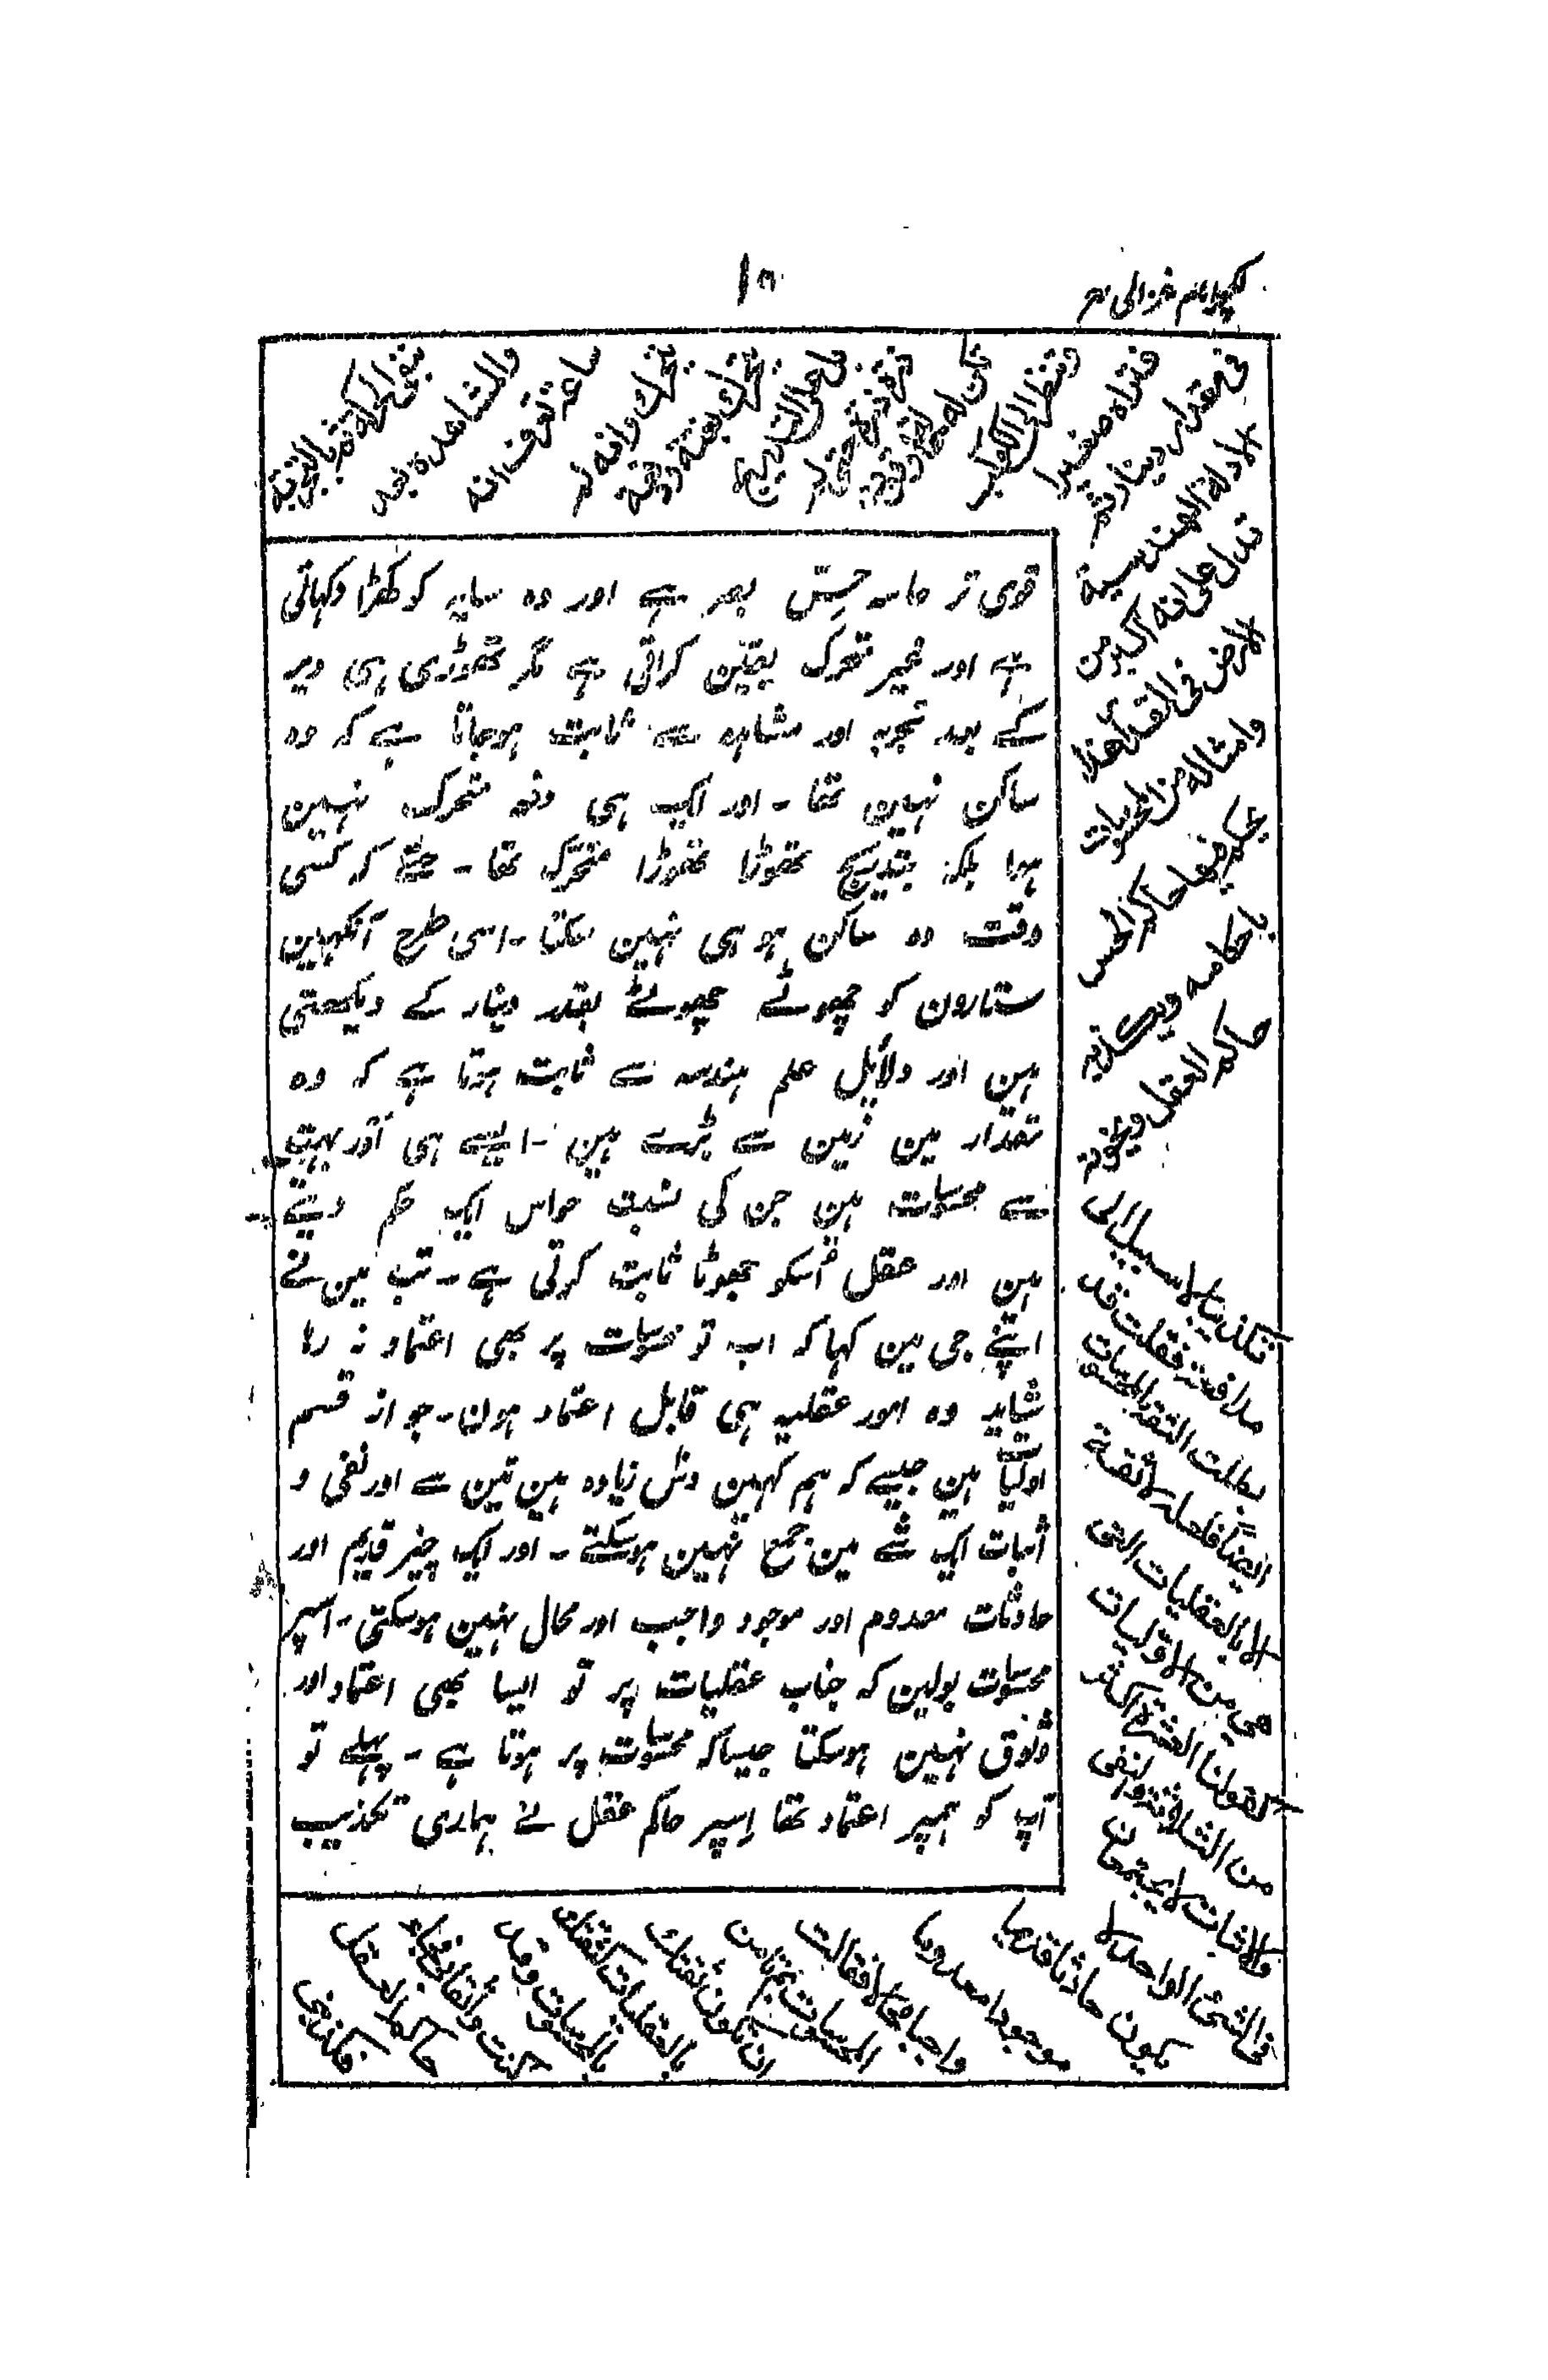 لکچر امام غزالی رح
۱۵
بنفی الحرکة ثم بالتجربة
والمشاهدة بعد
ساعة تعرف انه
متحرک وانه لم
یتحرک بغتة دفعة
بل علی التدریج
ذرة ذرة حتی لم
یکن له حالة وقوف
وتنظر الی الکوکب
فتراه صغیرا
فی مقدار دینار ثم
الادلة الهندسیة
تدل علی انه اکبر من
الارض فی المقدار هذا
وامثاله من المحسوسات
یحکم فیها حاکم الحس
باحکامه ویکذبه
حاکم العقل ویخونه
تکذیبا لا سبیل الی
مدافعته فقلت قد
بطلت الثقة بالمحسوسات
ایضًا فلعله لا ثقة
الا بالعقلیات التی
هی من الاولیات
کقولنا العشرة اکثر
من الثلاثة والنفی
والاثبات لا یجتمعان
فی الشئ الواحد لا
یکون حادثا قدیما
موجودا معدوما
واجبا محالا فقالت
المحسوسات بم تامن
ان تکون ثقتک
بالعقلیات کثقتک
بالمحسوسات وقد
کنت واثقا بی فجاء
حاکم العقل
فکذبنی
قوی تر حاسہ حِسّ بصر ہے اور وہ سایہ کو کھڑا دکہاتی
ہے اور غیر متحرک یقین کراتی ہے مگر تھوڑی ہی دیر
کے بعد تجربہ اور مشاہدہ سے ثابت ہوجاتا ہے کہ وہ
ساکن نہین تھا ۔ اور ایک ہی دفعہ متحرک نہین
ہوا بلکہ بتدریج تھوڑا تھوڑا متحرک تھا ۔ حتے کہ کسی
وقت وہ ساکن ہو ہی نہین سکتا ۔ اسی طرح آنکہین
ستارون کو چھوٹے چھوٹے بقدر دینار کے دیکھتی
ہین اور دلائل علم ہندسہ سے ثابت ہوتا ہے کہ وہ
مقدار مین زمین سے بڑے ہین ۔ ایسے ہی اَور بہت
سے محسوسات ہین جن کی نسبت حواس ایک حکم دیتے
ہین اور عقل اُسکو جھوٹا ثابت کرتی ہے ۔ تب مین نے
اپنے جی مین کہا کہ اب تو محسوسات پر بھی اعتماد نہ رہا
شاید وہ امور عقلیہ ہی قابل اعتماد ہون ۔ جو از قسم
اولیات ہین جیسے کہ ہم کہین دس زیادہ ہین تین سے اور نفی و
اثبات ایک شے مین جمع نہین ہوسکتے ۔ اور ایک چیز قدیم اور
حادثات معدوم اور موجود واجب اور محال نہین ہوسکتی ۔ اسپر
محسوسات بولین کہ جناب عقلیات پر تو ایسا بھی اعتماد اور
وثوق نہین ہوسکتا جیسا کہ محسوسات پر ہوتا ہے ۔ پہلے تو
آپ کو ہمپر اعتماد تھا اِسپر حاکم عقل نے ہماری تکذیب